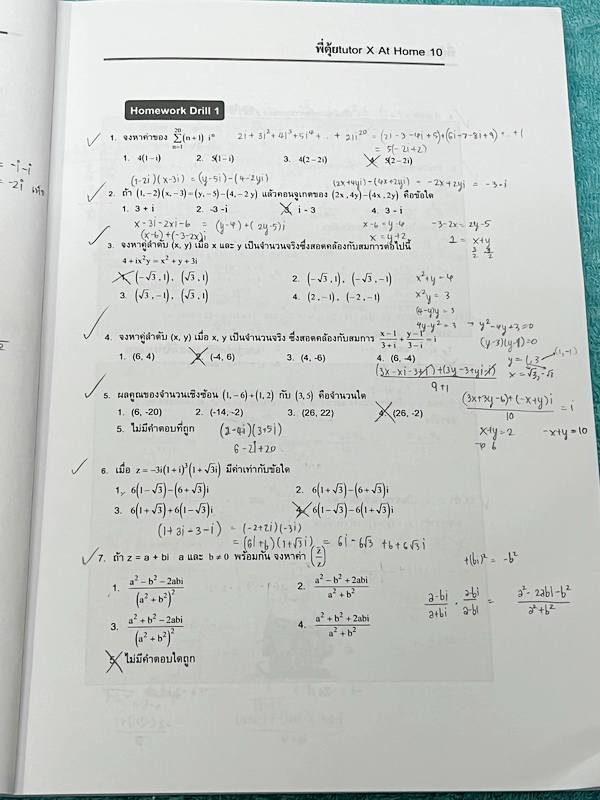 พี่ตุ้ยtutor X At Home 10
Homework Drill 1
1. จงหาค่าของ \sum_{n=1}^{20}(n+1) i^n 2i + 3i² + 4i³ + 5i⁴ + .. + 21i²⁰ = (2i - 3 - 4i + 5) + (6i - 7 - 8i + 9) + .. + (
= 5(-2i+2)
1. 4(1-i) 2. 5(1-i) 3. 4(2-2i) 4. 5(2-2i)
(1-2i)(x-3i) = (y-5i) - (4-2yi) (2x+4yi) - (4x+2yi) = -2x + 2yi = -3-i
2. ถ้า (1,-2)(x,-3) = (y,-5)-(4,-2 y) แล้วคอนจูเกตของ (2x ,4y)-(4x ,2y) คือข้อใด
1. 3 + i 2. -3 -i 3. i - 3 4. 3 - i
x - 3i - 2xi - 6 = (y-4) + (2y-5)i x-6 = y-4 -3-2x = 2y-5
(x-6) + (-3-2x)i x = y+2 1 = x+y
3. จงหาคู่ลำดับ (x, y) เมื่อ x และ y เป็นจำนวนจริงซึ่งสอดคล้องกับสมการต่อไปนี้
4 + ix²y = x² + y + 3i
1. (-√3 ,1), (√3 ,1) 2. (-√3 ,1), (-√3 ,-1) x²+y = 4
3. (√3 ,-1), (√3 ,1) 4. (2,-1), (-2 ,-1) x²y = 3
(4-y)y = 3
4y-y² = 3 → y²-4y+3=0
(y-3)(y-1)=0
4. จงหาคู่ลำดับ (x, y) เมื่อ x, y เป็นจำนวนจริง ซึ่งสอดคล้องกับสมการ \frac{x-1}{3+i}+\frac{y-1}{3-i}=i
y = 1, 3
1. (6, 4) 2. (-4, 6) 3. (4, -6) 4. (6, -4) x = √3, -√3
9+1
\frac{(3x+3y-6)+(-x+y)i}{10} = i
5. ผลคูณของจำนวนเชิงซ้อน (1,-6)+(1,2) กับ (3,5) คือจำนวนใด
1. (6, -20) 2. (-14, -2) 3. (26, 22) 4. (26, -2) x+y = 2 -x+y = 10
5. ไม่มีคำตอบที่ถูก (2-4i)(3+5i)
6-2i+20
6. เมื่อ z = -3i(1+i)³(1+√3i) มีค่าเท่ากับข้อใด
1. 6(1-√3)-(6+√3)i 2. 6(1+√3)-(6+√3)i
3. 6(1+√3)+6(1-√3)i 4. 6(1-√3)-6(1+√3)i
(1+3i-3-i) = (-2+2i)(-3i)
= (6i+6)(1+√3i) = 6i-6√3 +6+6√3i
7. ถ้า z = a + bi a และ b ≠ 0 พร้อมกัน จงหาค่า (\frac{\bar{z}}{z}) +(bi)² = -b²
1. \frac{a²-b²-2abi}{(a²+b²)²} 2. \frac{a²-b²+2abi}{a²+b²} \frac{a-bi}{a+bi} · \frac{a-bi}{a-bi} = \frac{a²-2abi-b²}{a²+b²}
3. \frac{a²+b²-2abi}{(a²+b²)²} 4. \frac{a²+b²+2abi}{a²+b²}
5. ไม่มีคำตอบใดถูก